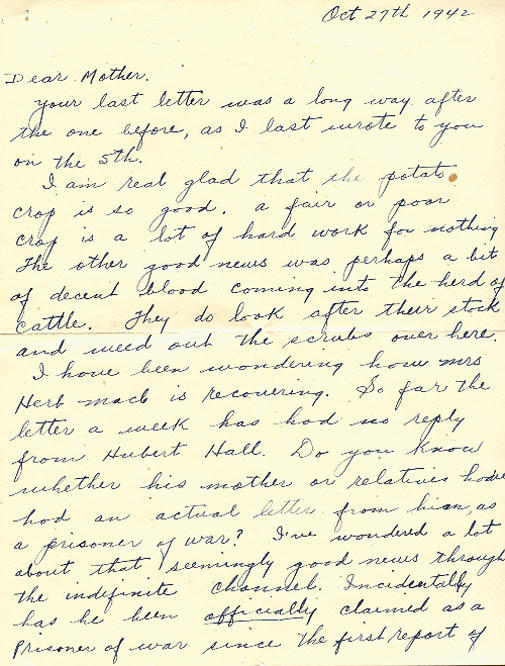 Oct 27th 1942
Dear Mother.
Your last letter was a long way after
the one before, as I last wrote to you
on the 5th.
I am real glad that the potato
crop is so good. a fair or poor
crop is a lot of hard work for nothing
The other good news was perhaps a bit
of decent blood coming into the herd of
cattle. They do look after their stock
and weed out the scrubs over here.
I have been wondering how mrs
Herb mack is recovering. So far the
letter a week has had no reply
from Hubert Hall. Do you know
whether his mother or relatives have
had an actual letter from him, as
a prisoner of war? I've wondered a lot
about that seemingly good news through
the indefinite channel. Incidentally
has he been officially claimed as a
Prisoner of war since the first report of